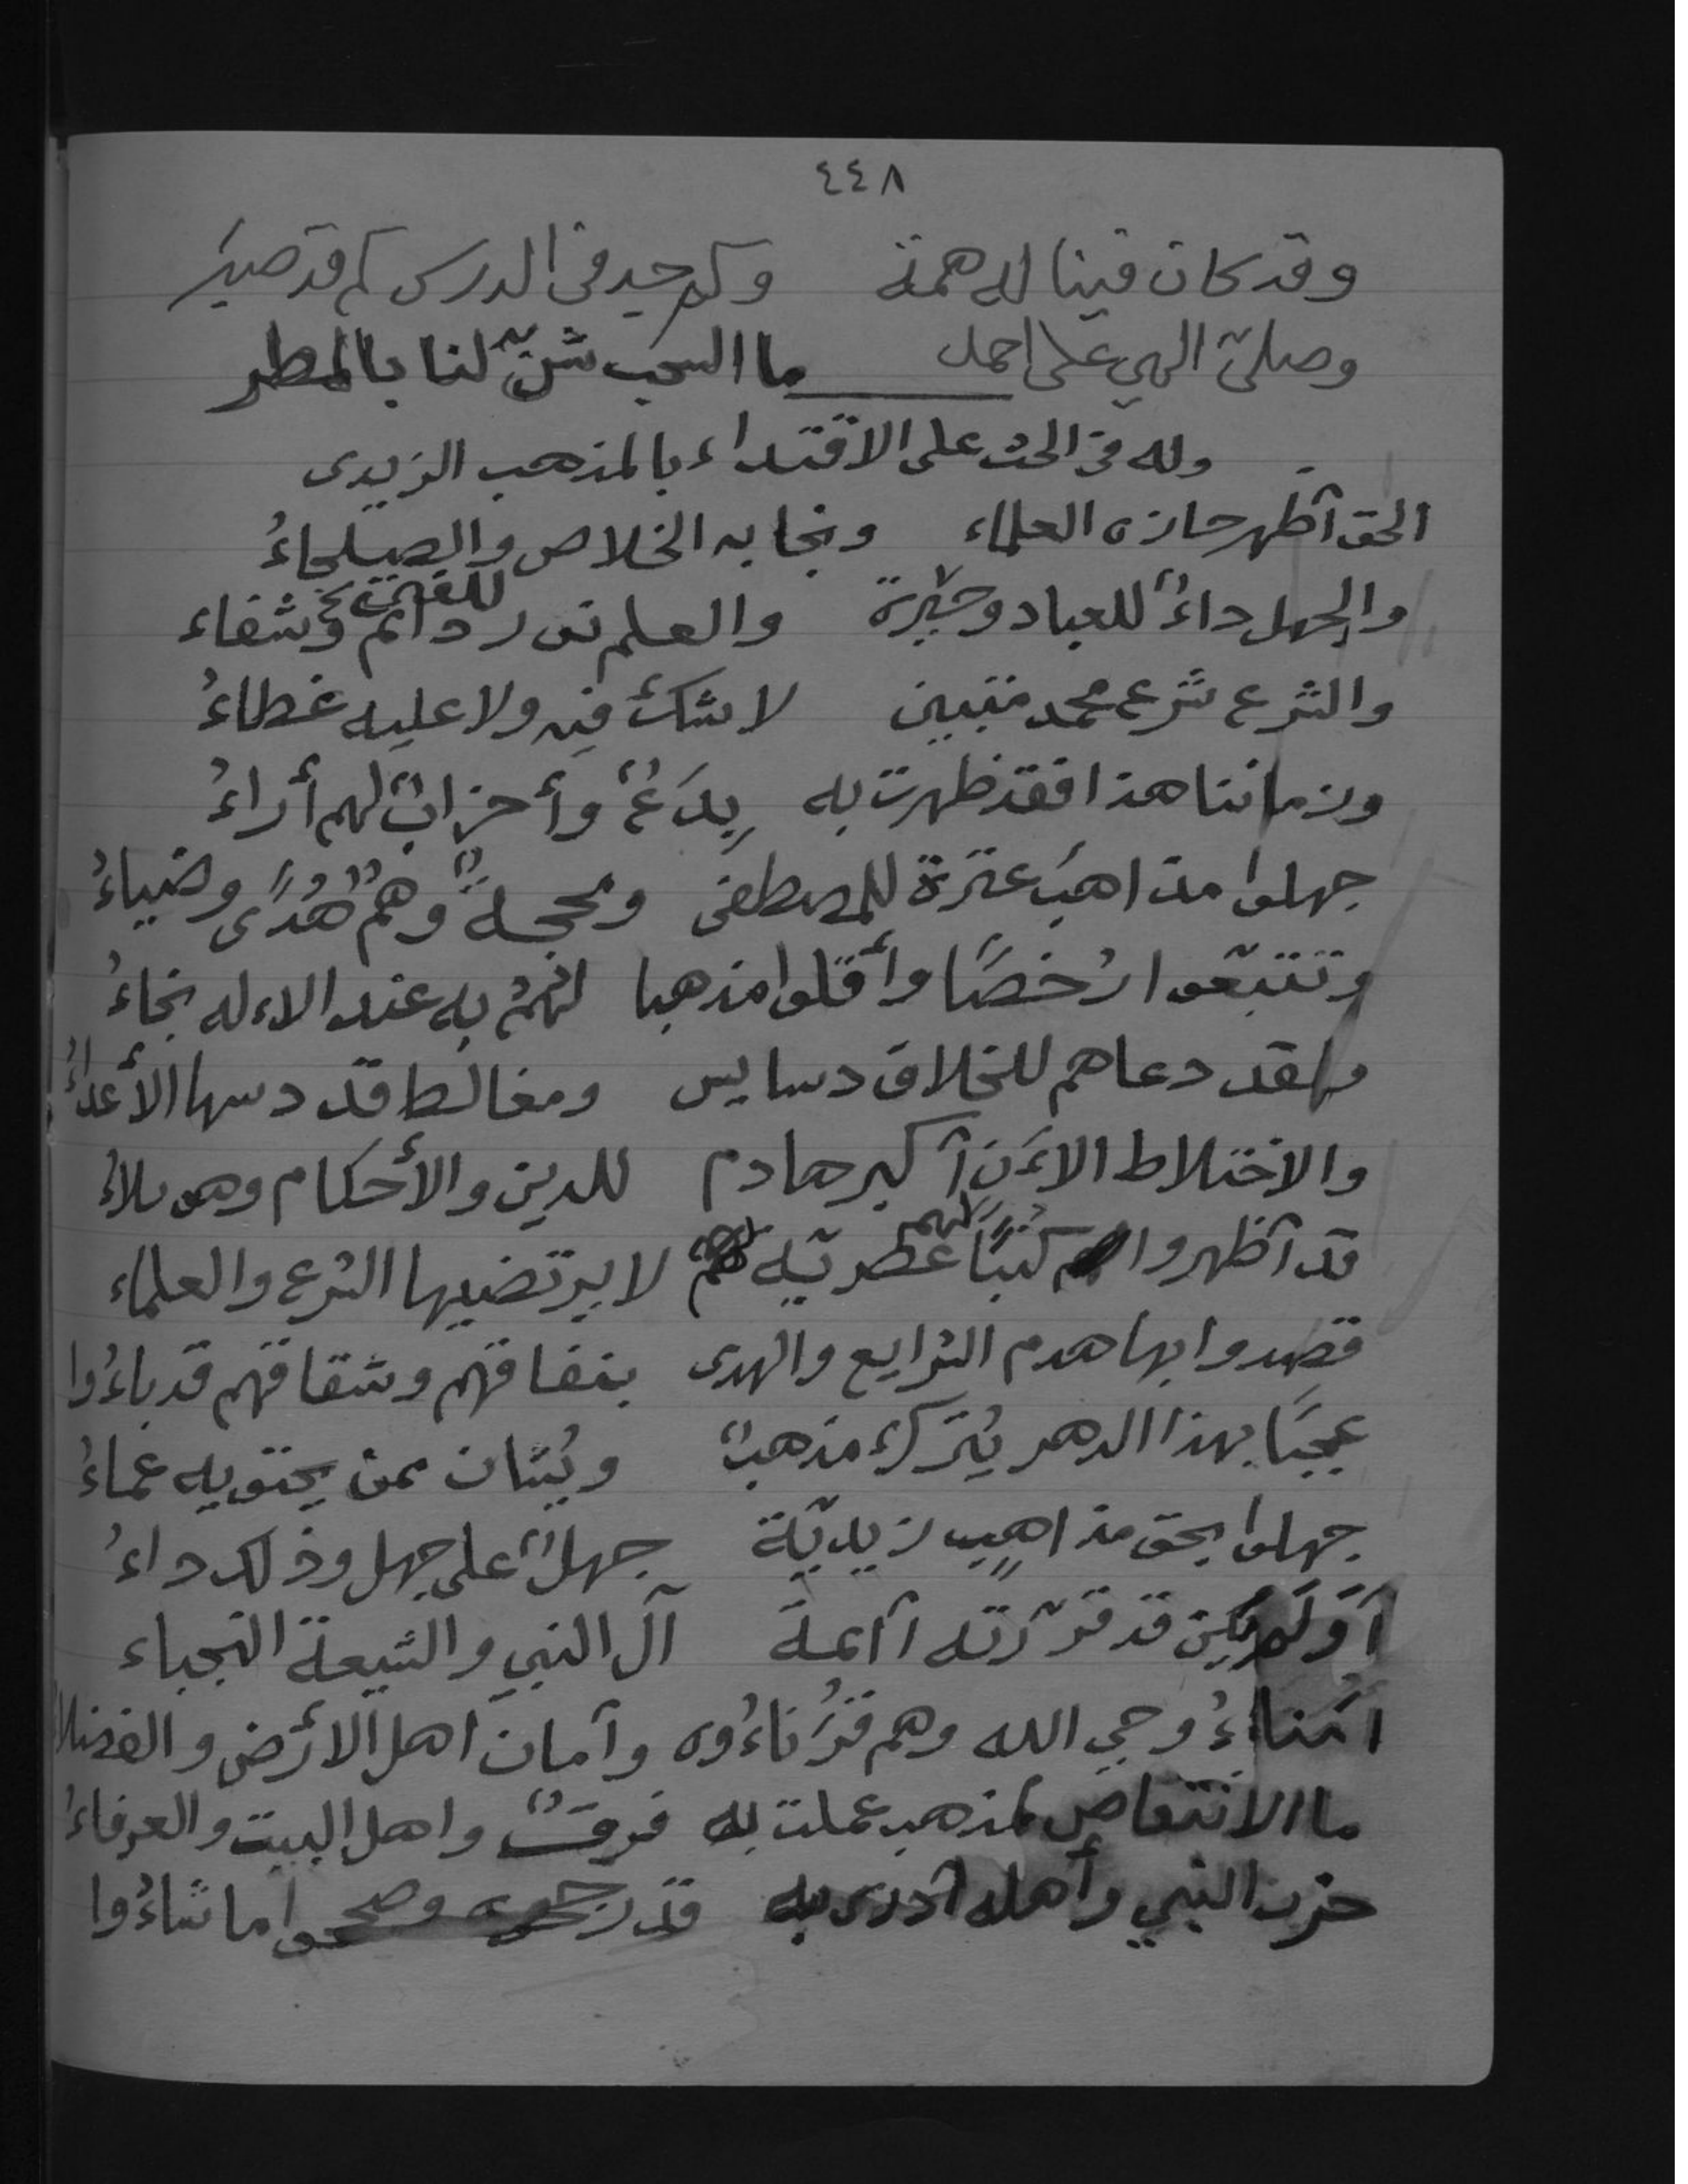 ٤٤٨
وقد كان فينا له همة وكم جيد في الدرس كم قد صبر
وصلي الهي على احمد ما السحب شن لنا بالمطر
وله في الحث على الاقتداء بالمذهب الزيدي
الحق أظهر حازه العلماء ونجا به الخلاص والصلحاءُ
والجهل داءٌ للعباد وحيرة والعلم نور دائم وشفاء
والشرع شرع محمد متبين لا شكَ فيه ولا عليه غطاءُ
وزماننا هذا فقد ظهرت به بِدَعٌ وأحزابٌ لهم أراءُ
جهلوا مذاهبَ عترة للمصطفى ومحجةً وهمُ هُدًى وضياءُ
وتتبّعوا رُخصًا وأقلوا مذهبا لهمُ به عند الاءله نجاءُ
ولقد دعاهم للخلاف دسايس ومغالط قد دسها الأعداءُ
والاختلاط الاءَن أكبر هادم للدين والأحكام وهو بلاءُ
قد أظهروا كتبًا لهم عصريّه لا يرتضيها الشرع والعلماء
قصدوا بها هدم الشرايع والهدى بنفاقهم وشقاقهم قد باءُوا
عجبًا بهذا الدهر يُترك مذهبٌ ويُشان ممن يحتويه عماءُ
جهلوا بحق مذاهبٍ زيديّة جهلٌ على جهل وذلك داءُ
أوَلَم يكن قد قرّرته أأمة آل النبي والشيعة النجباء
امناءُ وحي الله وهم قُرناءُوه وأمان اهل الأرض والفضلاءُ
ما الانتقاص لمذهب عملت به فرقٌ واهل البيت والعرفاءُ
حزب النبي وأهله أدرى به قد رجحوا وصححوا ما شاءُوا